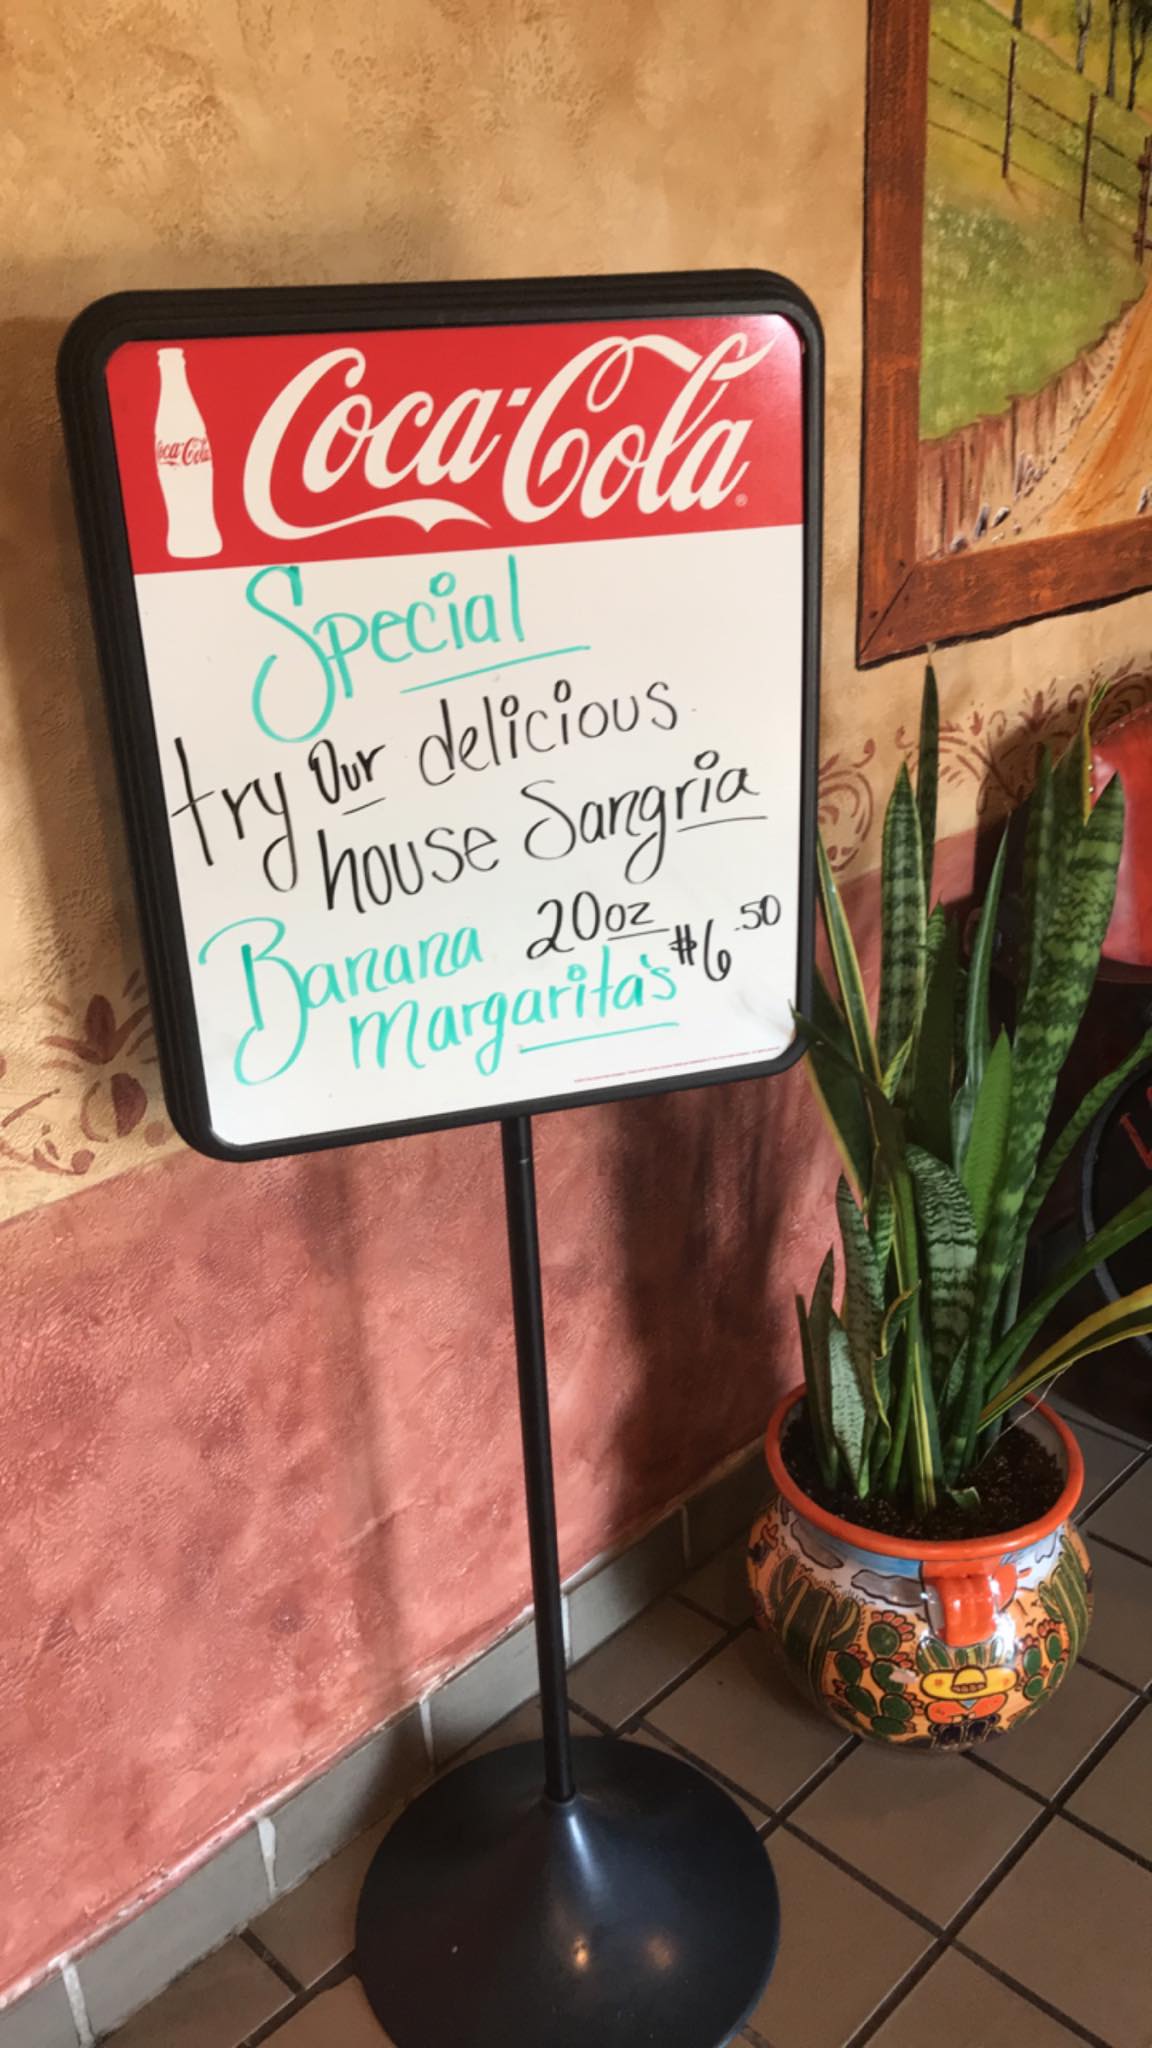 Coca-Cola
Coca-Cola®
Special
try Our delicious
house Sangria
20oz $6.50
Banana
Margarita's